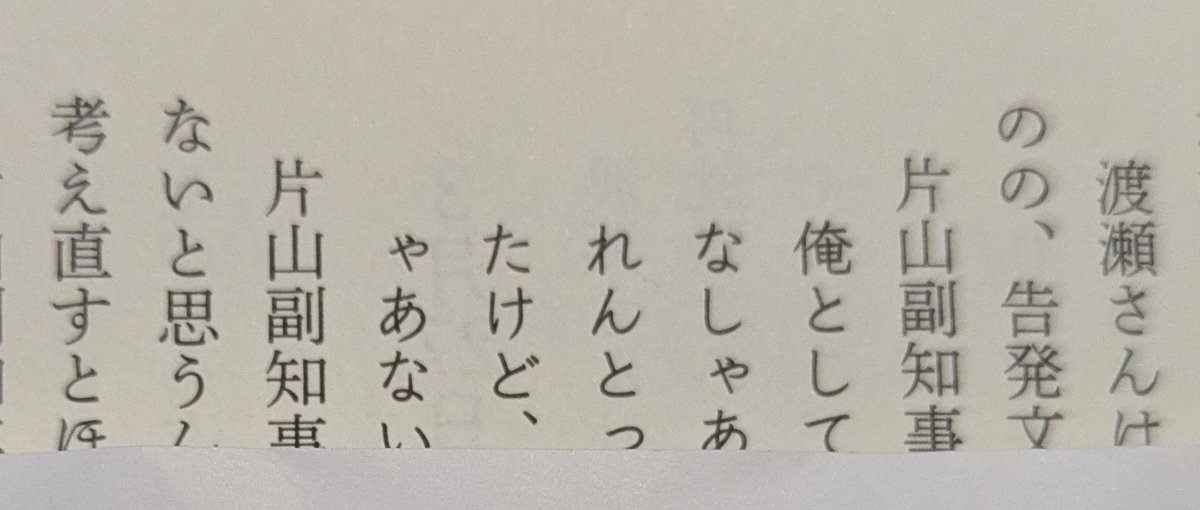 渡瀬さんは
のの、告発文
片山副知事
俺として
なしゃあ
れんとっ
たけど、
ゃあない
片山副知事
ないと思うん
考え直すとほ